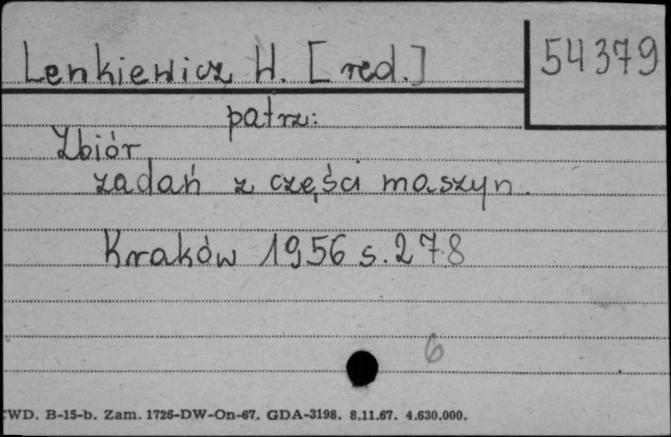 Lenkiewicz W. [red.]
54379
patrz:
Zbiór
zadań z części maszyn.
Kraków 1956 s. 278
6
CWD. B-15-b. Zam. 1726-DW-On-67. GDA-3198. 8.11.67. 4.630.000.